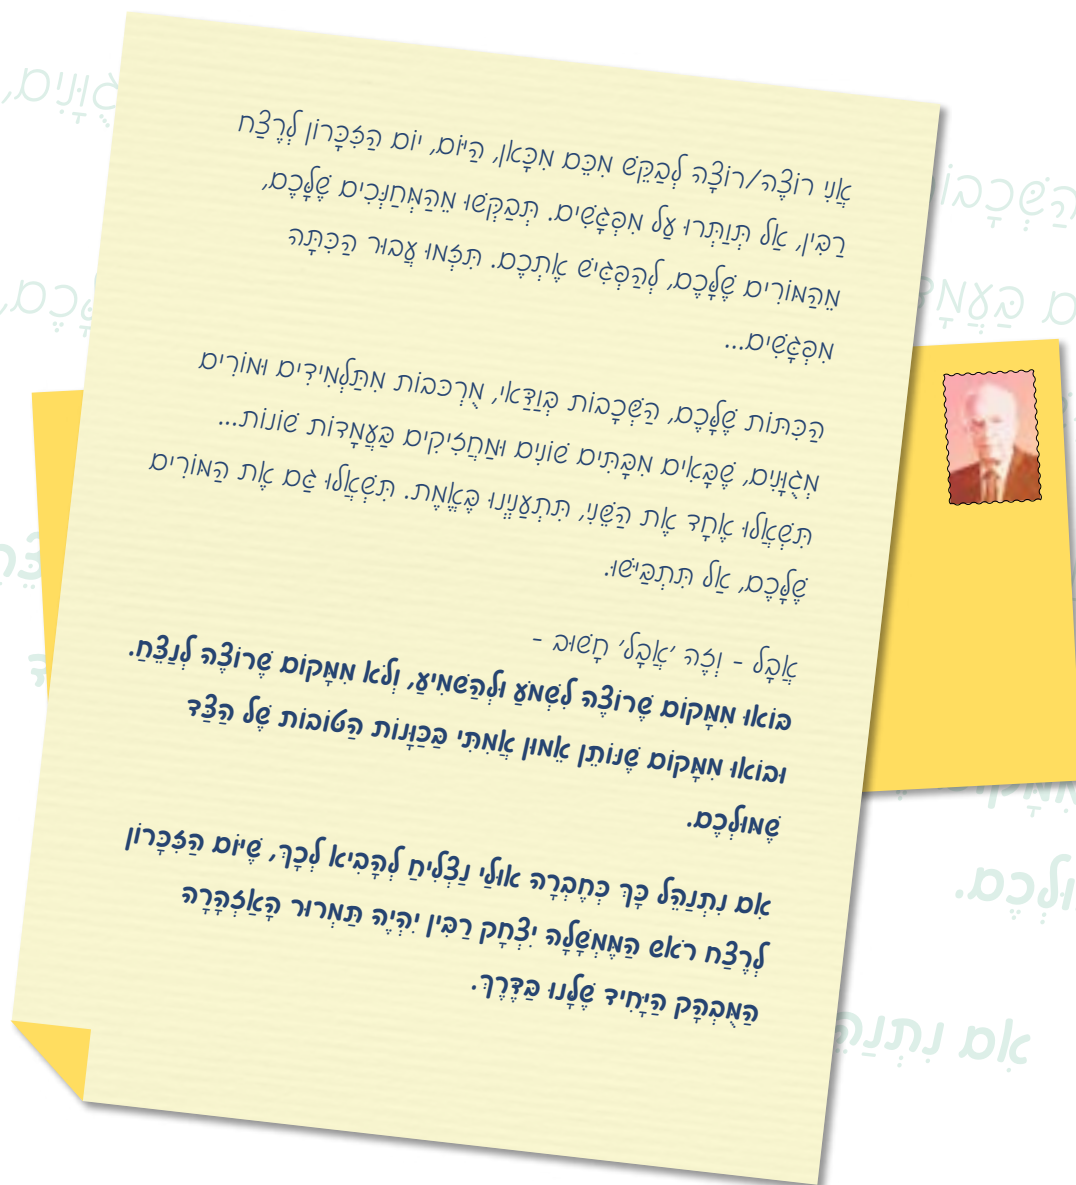 אֲנִי רוֹצֶה/רוֹצָה לְבַקֵּשׁ מִכֵּם מִכָּאן, הַיּוֹם, יוֹם הַזִּכָּרוֹן לְרֶצַח
רַבִּין, אַל תְּוַתְּרוּ עַל מִפְגָּשִׁים. תְּבַקְּשׁוּ מֵהַמְּחַנְּכִים שֶׁלָּכֶם,
מֵהַמּוֹרִים שֶׁלָּכֶם, לְהַפְגִּישׁ אֶתְכֶם. תִּזְּמוּ עֲבוּר הַכִּתָּה
מִפְגָּשִׁים...
הַכִּתּוֹת שֶׁלָּכֶם, הַשְּׁכָבוֹת בְּוַדַּאי, מֻרְכּבוֹת מִתַּלְמִידִים וּמוֹרִים
מְגֻוָּנִים, שֶׁבָּאִים מִבָּתִּים שׁוֹנִים וּמַחֲזִיקִים בַּעֲמָדוֹת שׁוֹנוֹת...
תִּשְׁאֲלוּ אֶחָד אֶת הַשֵּׁנִי, תִּתְעַנְיְנוּ בֶּאֱמֶת. תִּשְׁאֲלוּ גַּם אֶת הַמּוֹרִים
שֶׁלָּכֶם, אַל תִּתְבַּיְּשׁוּ.
אֲבָל - וְזֶה 'אֲבָל' חָשׁוּב -
בּוֹאוּ מִמָּקוֹם שֶׁרוֹצֶה לִשְׁמֹעַ וּלְהַשְׁמִיעַ, וְלֹא מִמָּקוֹם שֶׁרוֹצֶה לְנַצֵּחַ.
וּבוֹאוּ מִמָּקוֹם שֶׁנּוֹתֵן אֵמוּן אֲמִתִּי בַּכַּוָּנוֹת הַטּוֹבוֹת שֶׁל הַצַּד
שֶׁמּוּלְכֶם.
אִם נִתְנַהֵל כָּךְ כְּחֶבְרָה אוּלַי נַצְלִיחַ לְהָבִיא לְכָךְ, שֶׁיּוֹם הַזִּכָּרוֹן
לְרֶצַח רֹאשׁ הַמֶּמְשָׁלָה יִצְחָק רַבִּין יִהְיֶה תַּמְרוּר הָאַזְהָרָה
הַמֻּבְהָק הַיָּחִיד שֶׁלָּנוּ בַּדֶּרֶךְ.